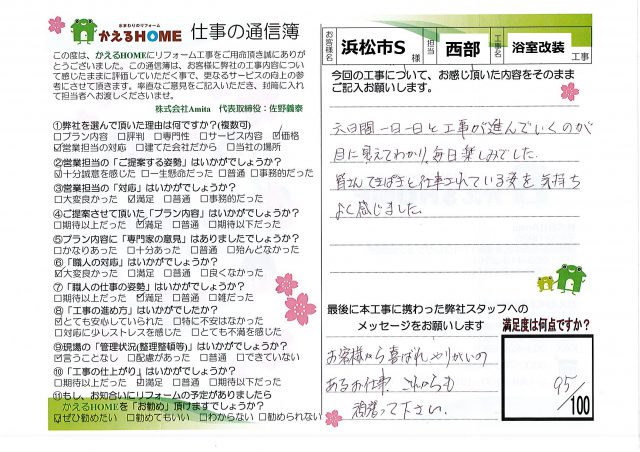 おまわりのリフォーム
かえるHOME 仕事の通信簿
この度は、かえるHOMEにリフォーム工事をご用命頂き誠にありが
とうございました。この通信簿は、お客様に弊社の工事内容について
感じたままに評価していただく事で、更なるサービスの向上の参
考にさせて頂きます。率直なご意見をご記入いただき、封筒に入れ
て担当者へお渡しくださいませ。
株式会社Amita 代表取締役：佐野義泰
①弊社を選んで頂いた理由は何ですか?(複数可)
□プラン内容 □評判 □専門性 □サービス内容 ☑価格
☑営業担当の対応 □建てた会社だから □当社の場所
②営業担当の「ご提案する姿勢」はいかがでしょうか?
☑十分誠意を感じた □一生懸命だった □普通 □事務的だった
③営業担当の「対応」はいかがでしょうか?
□大変良かった ☑満足 □普通 □事務的だった
④ご提案させて頂いた「プラン内容」はいかがでしょうか?
□期待以上だった ☑満足 □普通 □期待以下だった
⑤プラン内容に「専門家の意見」はありましたでしょうか?
□かなりあった □十分あった □普通 □殆んどなかった
⑥「職人の対応」はいかがでしょうか?
☑大変良かった □満足 □普通 □良くなかった
⑦「職人の仕事の姿勢」はいかがでしょうか?
□期待以上だった ☑満足 □普通 □雑だった
⑧「工事の進め方」はいかがでしたか?
☑とても安心していられた □特に不安はなかった
□対応に少しストレスを感じた □とても不満を感じた
⑨現場の「管理状況(整理整頓等)」はいかがでしょうか?
☑言うことなし □配慮があった □普通 □できていない
⑩「工事の仕上がり」はいかがでしょうか?
□期待以上だった ☑満足 □普通 □期待以下だった
⑪もし、お知合いにリフォームの予定がありましたら
かえるHOMEを「お勧め」頂けますでしょうか?
☑ぜひ勧めたい □勧めてもいい □わからない □勧められない
お客様名 浜松市S様 担当 西部 工事名 浴室改装 工事
今回の工事について、お感じ頂いた内容をそのまま
ご記入お願いします。
六日間一日一日と工事が進んでいくのが
目に見えてわかり、毎日楽しみでした。
皆さんてきぱきと仕事されている姿を気持ち
よく感じました。
最後に本工事に携わった弊社スタッフへの
メッセージをお願いします
お客様から喜ばれ、やりがいの
あるお仕事、これからも
頑張って下さい。
満足度は何点ですか?
95
/100